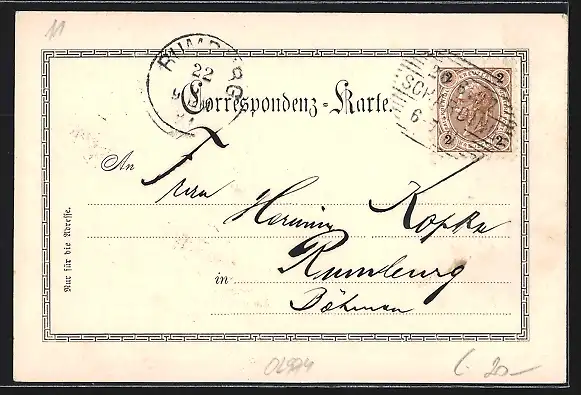 11
RUMBURG
22
2
2
2
2
Correspondenz-Karte.
6
An Frau
Hermine Kopka
in Rumburg
Böhmen
Nur für die Adresse.
04974
20-